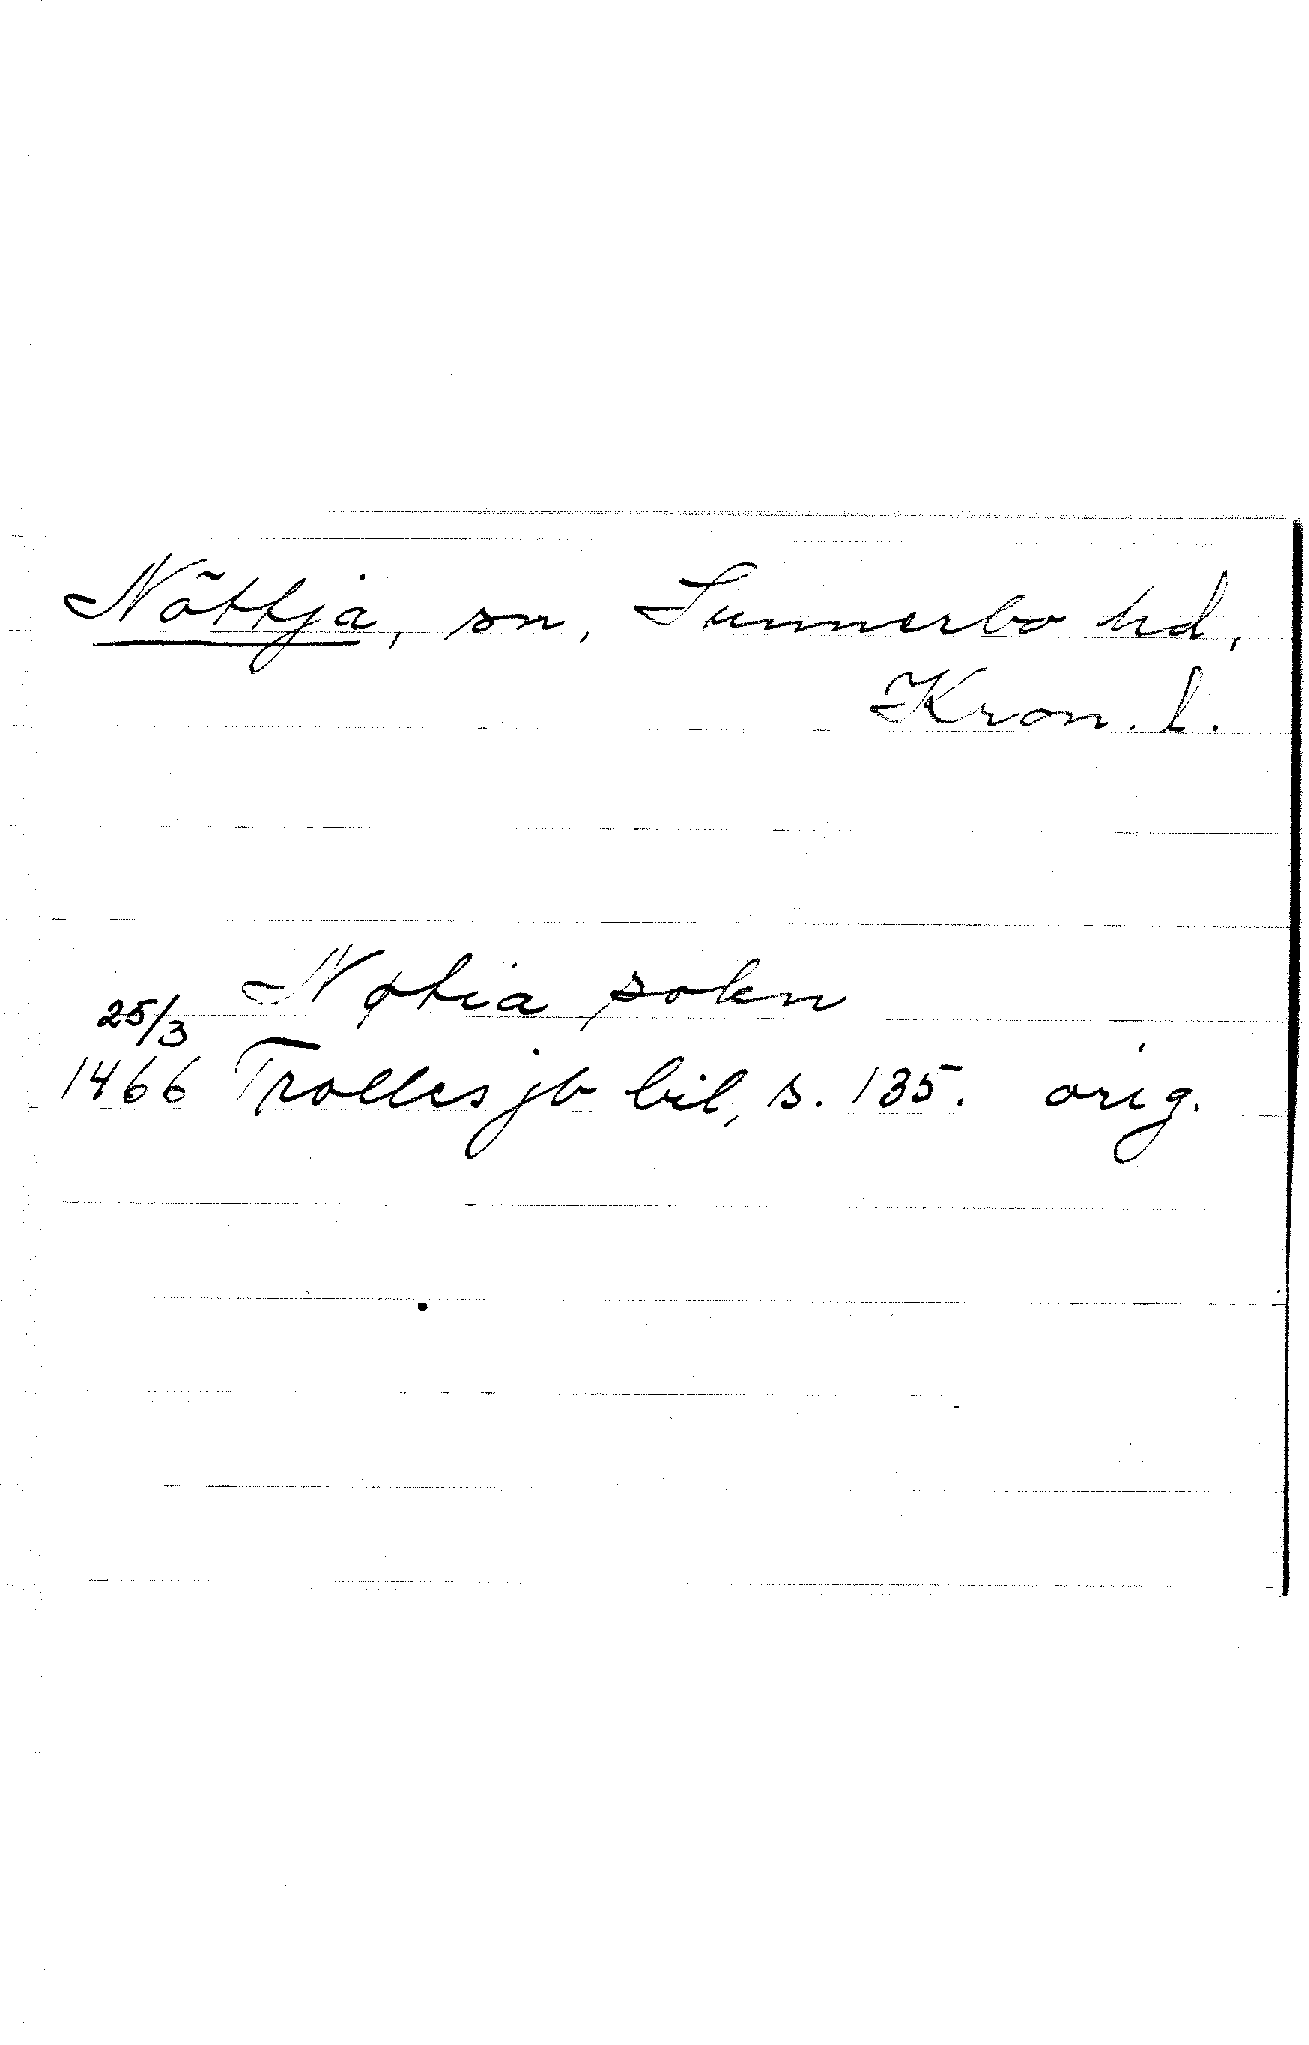 Nöttja, sn, Sunnerbo hd,
Kron. l.
Nøtia sokn
25/3
1466 Trolles jb bil, s. 135. orig.